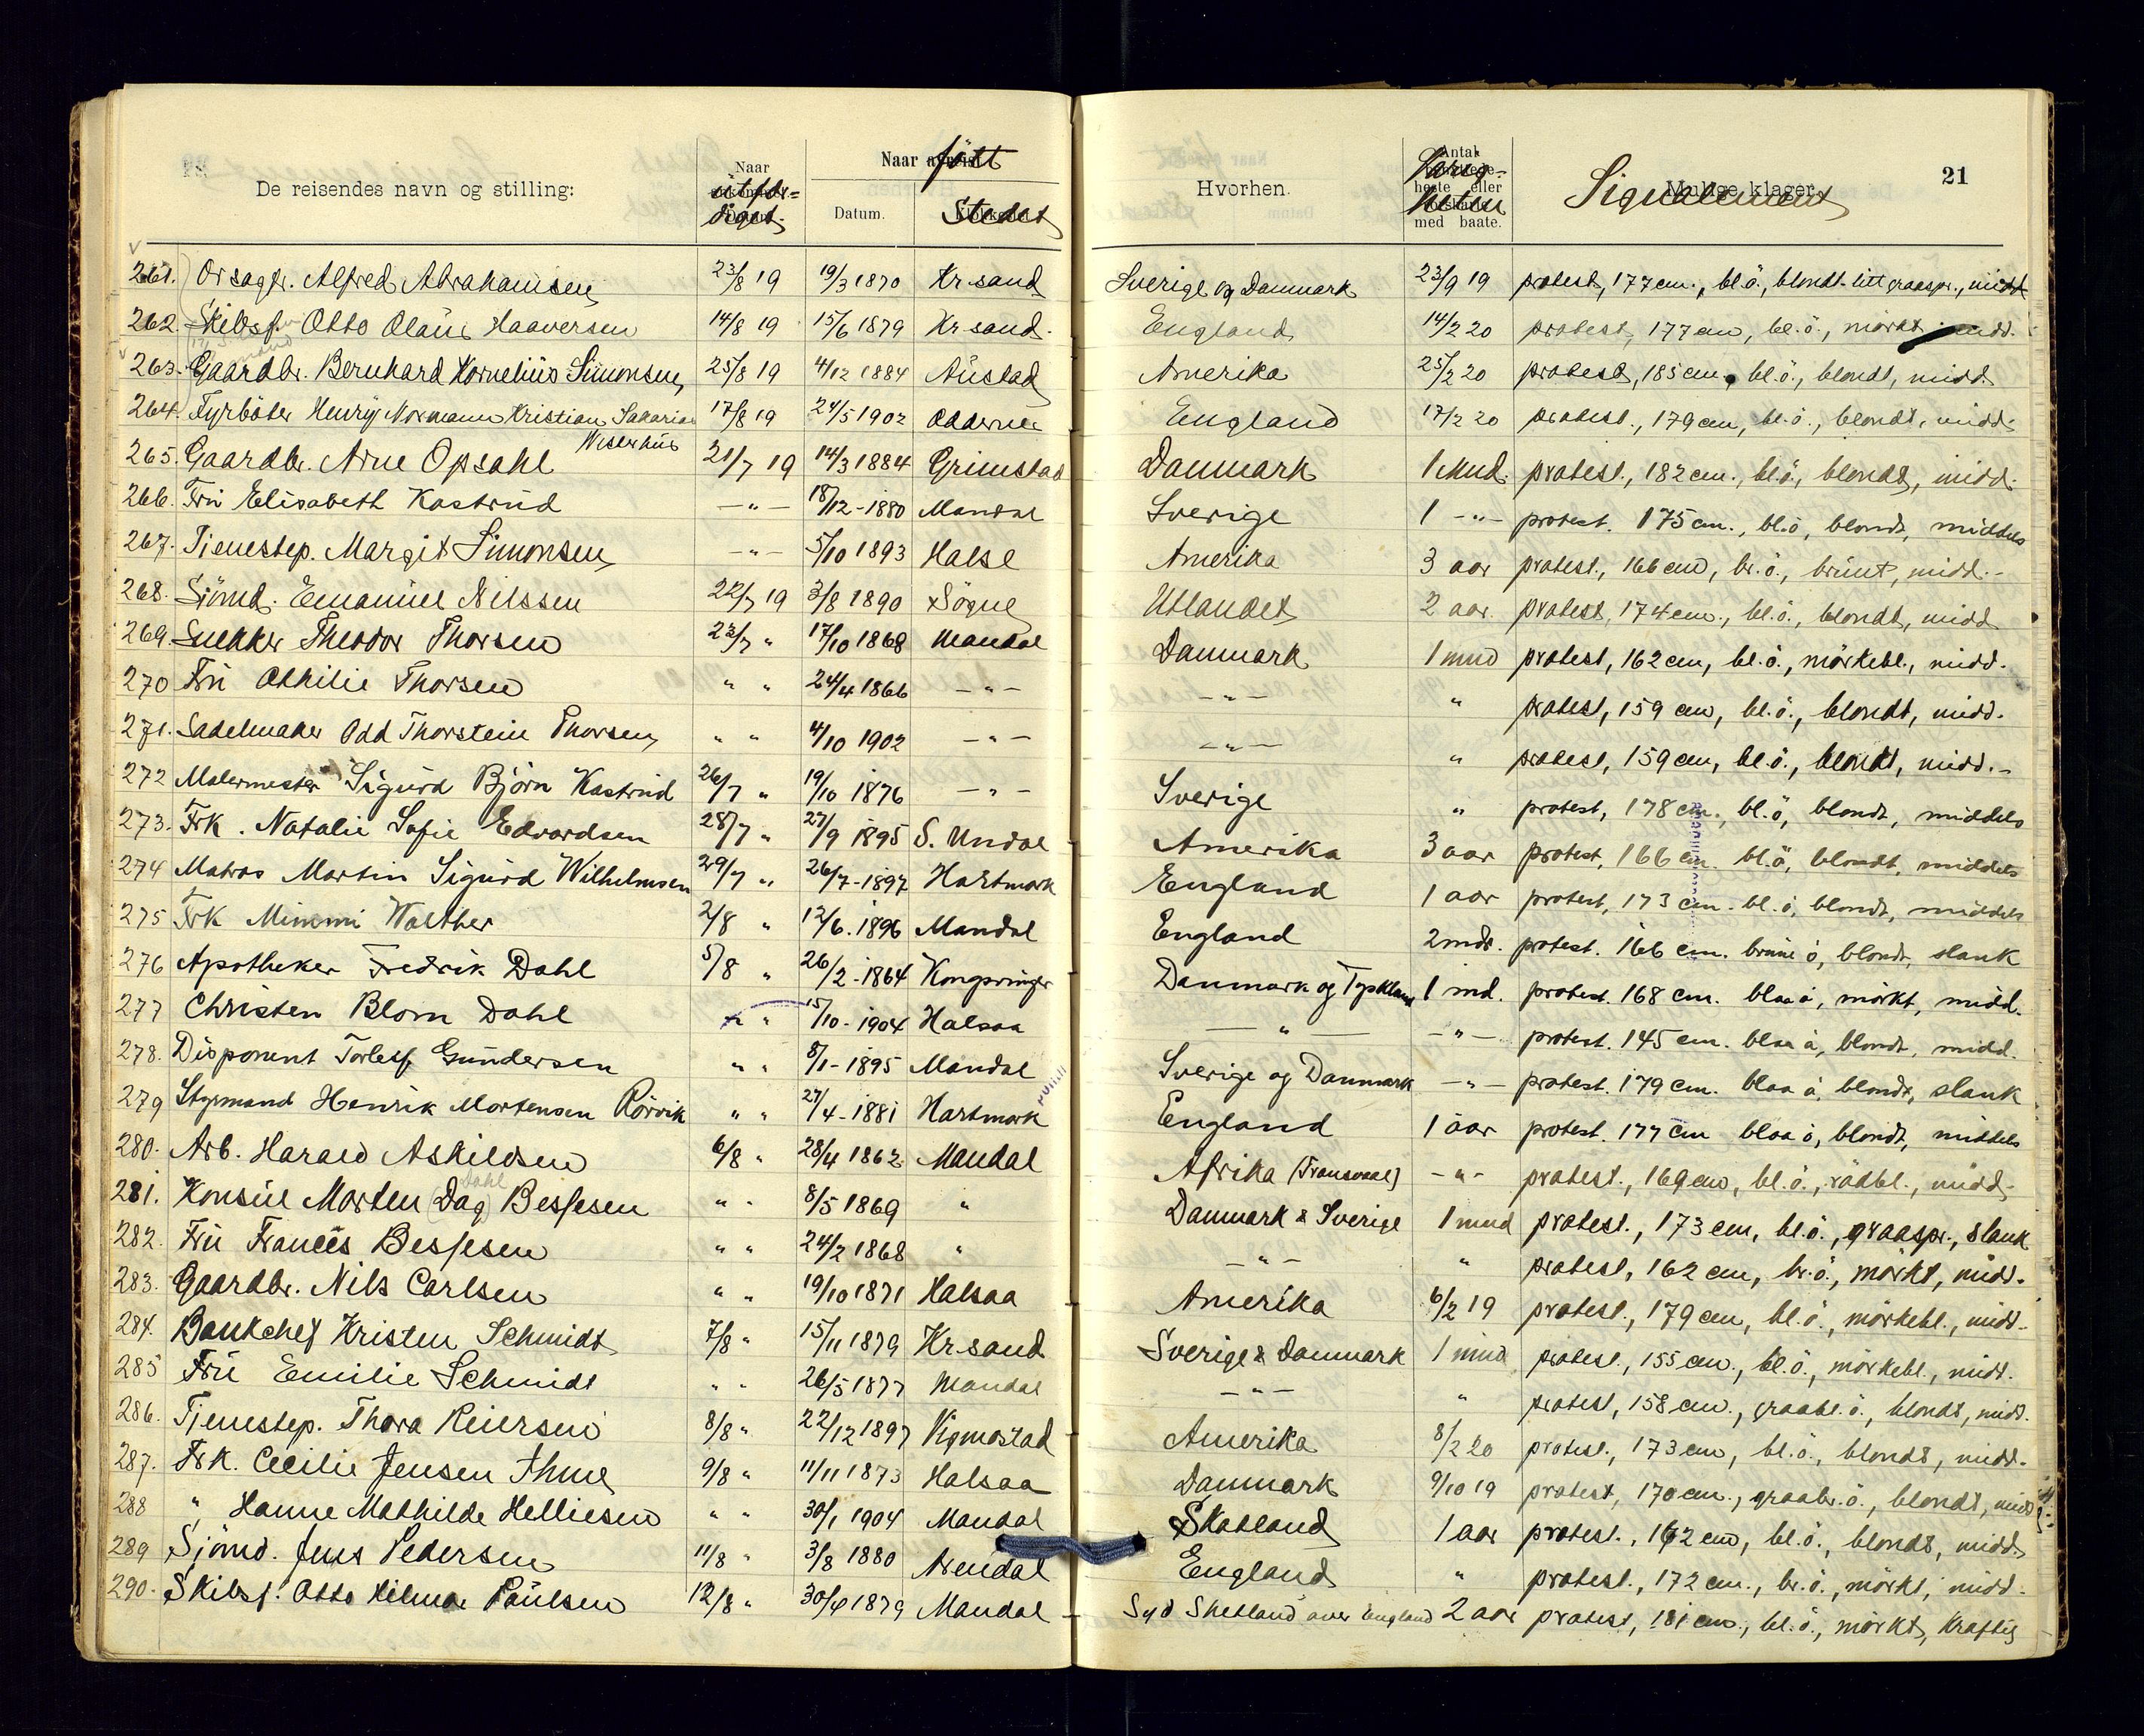 De reisendes navn og stilling: Naar utfær-diget. Naar født Datum. Stedet Hvorhen. Antal heste eller med baate. Signalement 21
261. Orsagf. Alfred Abrahamsen 23/8 19 19/3 1870 Kr.sand Sverige og Danmark 23/9 19 protest, 177 cm., bl.ö., blondt litt graaspr., midd
262. Skibsf. Otto Olaus Haaversen 14/8 19 15/6 1879 Kr.sand. England 14/2 20 protest, 177 cm, bl.ö., mörkt, midd.
263. Gaardbr. Bernhard Kornelius Simonsen 25/8 19 4/12 1884 Austad Amerika 25/2 20 protest, 185 cm, bl.ö., blondt, midd.
264. Fyrböter Henry Normann Kristian Sakarias 17/8 19 24/5 1902 Oddernes England 17/2 20 protest., 179 cm, bl.ö., blondt, midd.
Wiserhus
265. Gaardbr. Arne Opsahl 21/7 19 14/3 1884 Grimstad Danmark 1 Mnd. protest., 182 cm., bl.ö., blondt, midd.
266. Fru Elisabeth Kastrud —"— 18/12-1880 Mandal Sverige 1 -"- protest. 175 cm., bl.ö, blondt, middels
267. Tjenestep. Margit Simonsen —"— 5/10 1893 Halse Amerika 3 aar protest., 166 cm, br.ö., brunt, midd.-
268. Sjömd. Emanuel Nilssen 22/7 19 3/8 1890 Sögne Utlandet 2 aar. protest, 174 cm., bl.ö., blondt, midd
269. Snekker Theodor Thorsen 23/7 " 17/10 1868 Mandal Danmark 1 mnd protest, 162 cm, bl.ö., mörkebl., midd.
270 Fru Othilie Thorsen " " 24/4 1866 —"— —"— " protest, 159 cm, bl.ö., blondt, midd.
271. Sadelmaker Odd Thorstein Thorsen " " 4/10 1902 —"— —"— " protest, 159 cm, bl.ö., blondt, midd.-
272 Malermester Sigurd Björn Kastrud 26/7 " 19/10 1876 —"— Sverige " protest, 178 cm., bl.ö, blondt, middels
273. Frk. Natalie Sofie Edvardsen 28/7 " 27/9 1895 S. Undal Amerika 3 aar protest, 166 cm. bl.ö, blondt, middels
274 Matros Martin Sigurd Wilhelmsen 29/7 " 26/7-1897 Hartmark England 1 aar protest, 173 cm. bl.ö, blondt, middels
275 Frk Mimmi Walther 2/8 " 12/6.1896 Mandal England 2 mdr. protest. 166 cm. brune ö, blondt, slank
276 Apotheker Fredrik Dahl 5/8 " 26/2-1864 Kongsvinger Danmark og Tyskland 1 md. protest. 168 cm. blaa ö, mörkt, midd.
277 Christen Blom Dahl " " 15/10-1904 Halsaa —"— -"- protest. 145 cm. blaa ö, blondt, midd.
278. Disponent Torleif Gundersen " " 8/1-1895 Mandal Sverige og Danmark -"- protest. 179 cm. blaa ö, blondt, slank
279 Styrmand Henrik Mortensen Rörvik " " 27/4-1881 Hartmark England 1 aar protest. 177 cm blaa ö, blondt, middels
280. Arb. Harald Askildsen 6/8 " 28/4 1862 Mandal Afrika (Transvaal) -"- protest., 169 cm, bl.ö., rödbl., midd.
281. Konsul Morten (Dag) Dahl Bessesen " " 8/5 1869 " Danmark & Sverige 1 mnd protest., 173 cm, bl.ö., graaspr., slank
282. Fru Francis Bessesen " " 24/2 1868 " —"— " protest, 162 cm, br.ö., mörkt, midd.
283. Gaardbr. Nils Carlsen " " 19/10 1871 Halsaa Amerika 6/2 19 protest., 179 cm, bl.ö., mörkebl., midd.
284. Bankchef Kristen Schmidt 7/8 " 15/11 1879 Kr.sand Sverige & Danmark 1 mnd protest., 155 cm., bl.ö., mörkebl., midd.
285 Fru Emilie Schmidt " " 26/5 1877 Mandal —"— " protest, 158 cm., graabl.ö., blondt, midd.
286. Tjenestep. Thora Reiersen 8/8 " 22/12 1897 Vigmostad Amerika 8/2 20 protest., 173 cm, bl.ö., blondt, midd.
287. Frk. Cecilie Jensen Ihme 9/8 " 11/11 1873 Halsaa Danmark 9/10 19 protest, 170 cm., graabr.ö., blondt, midd
288 " Hanne Mathilde Helliesen " " 30/1 1904 Mandal Skotland 1 aar protest., 162 cm, bl.ö., blondt, midd.
289 Sjömd. Jens Pedersen 11/8 " 3/8 1880 Arendal England " protest., 172 cm., br.ö., mörkt, midd.
290. Skibsf. Otto Hilmar Paulsen 12/8 " 30/4 1879 Mandal Syd Shetland over England 2 aar protest, 181 cm., bl.ö., mörkt, kraftig